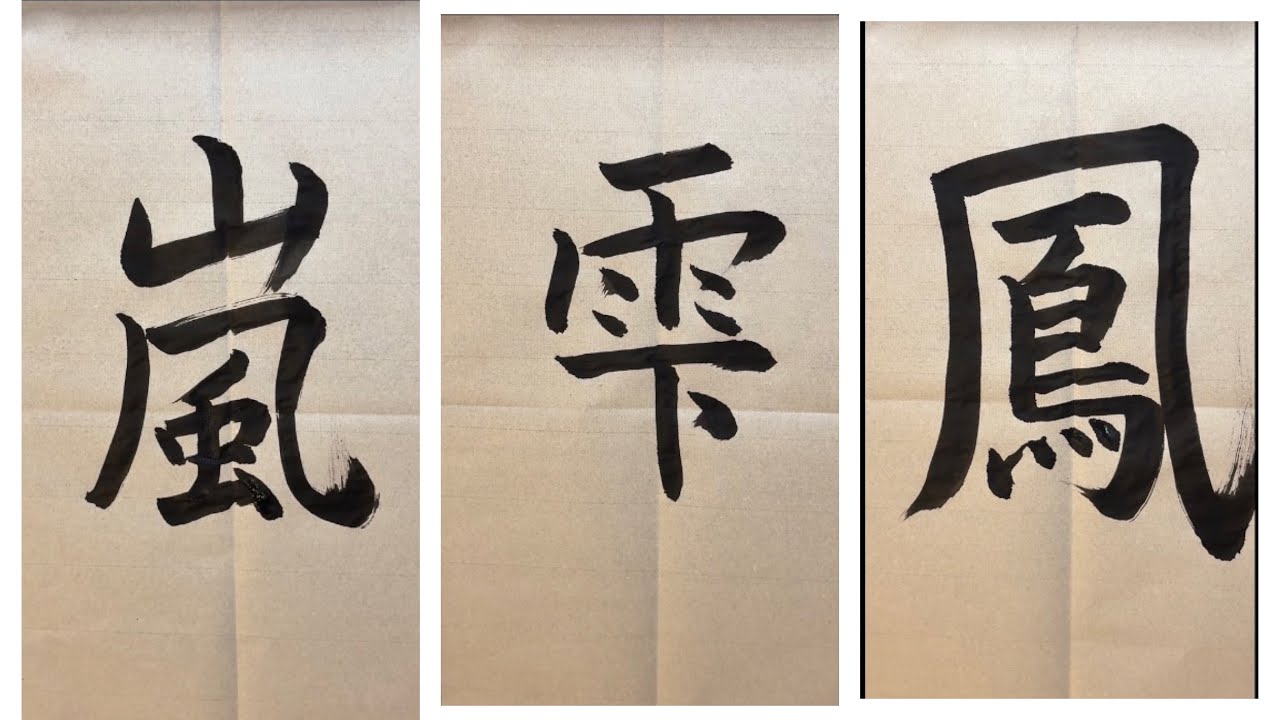 嵐
雫
鳳